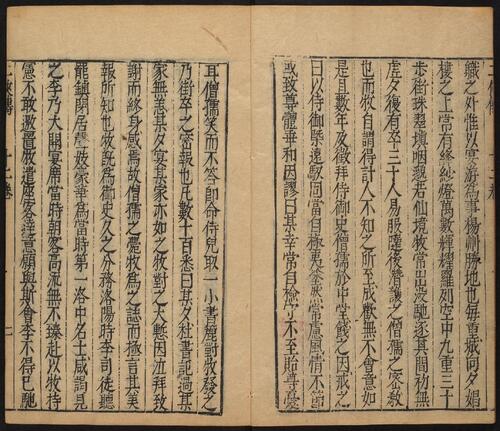 職之外惟以宴游為事楊州勝地也每重城向夕娼
樓之上常有絳紗燈萬數輝耀羅列空中九里三十
步街珠翠塡咽邈若仙境牧常出沒馳逐其間初無
虛夕復有卒三十人易服隨後潛護之僧孺之密敎
也而牧自謂得計人不知之所至成歡無不會意如
是且數年及徵拜侍御史僧孺於中堂餞之因戒之
曰以侍御槩遠馭固當自極夷塗然常慮風情不節
或致尊體乖和因謬曰某幸常自檢守不至貽尊憂
耳僧孺笑而不答即命侍兒取一小書簏對牧發之
乃街卒之密報也凡數十百悉曰某夕杜書記過某
家無恙某夕宴某家亦如之牧對之大慙因泣拜致
謝而終身感焉故僧孺之薨牧為之誌而極言其美
報所知也牧既為御史久之分務洛陽時李司徒
罷鎮閒居聲妓豪華為當時第一洛中名士咸謁見
之李乃大開宴席當時朝客高流無不臻赴以牧持
憲不敢邀置牧遣座客達意願與斯會李不得已馳